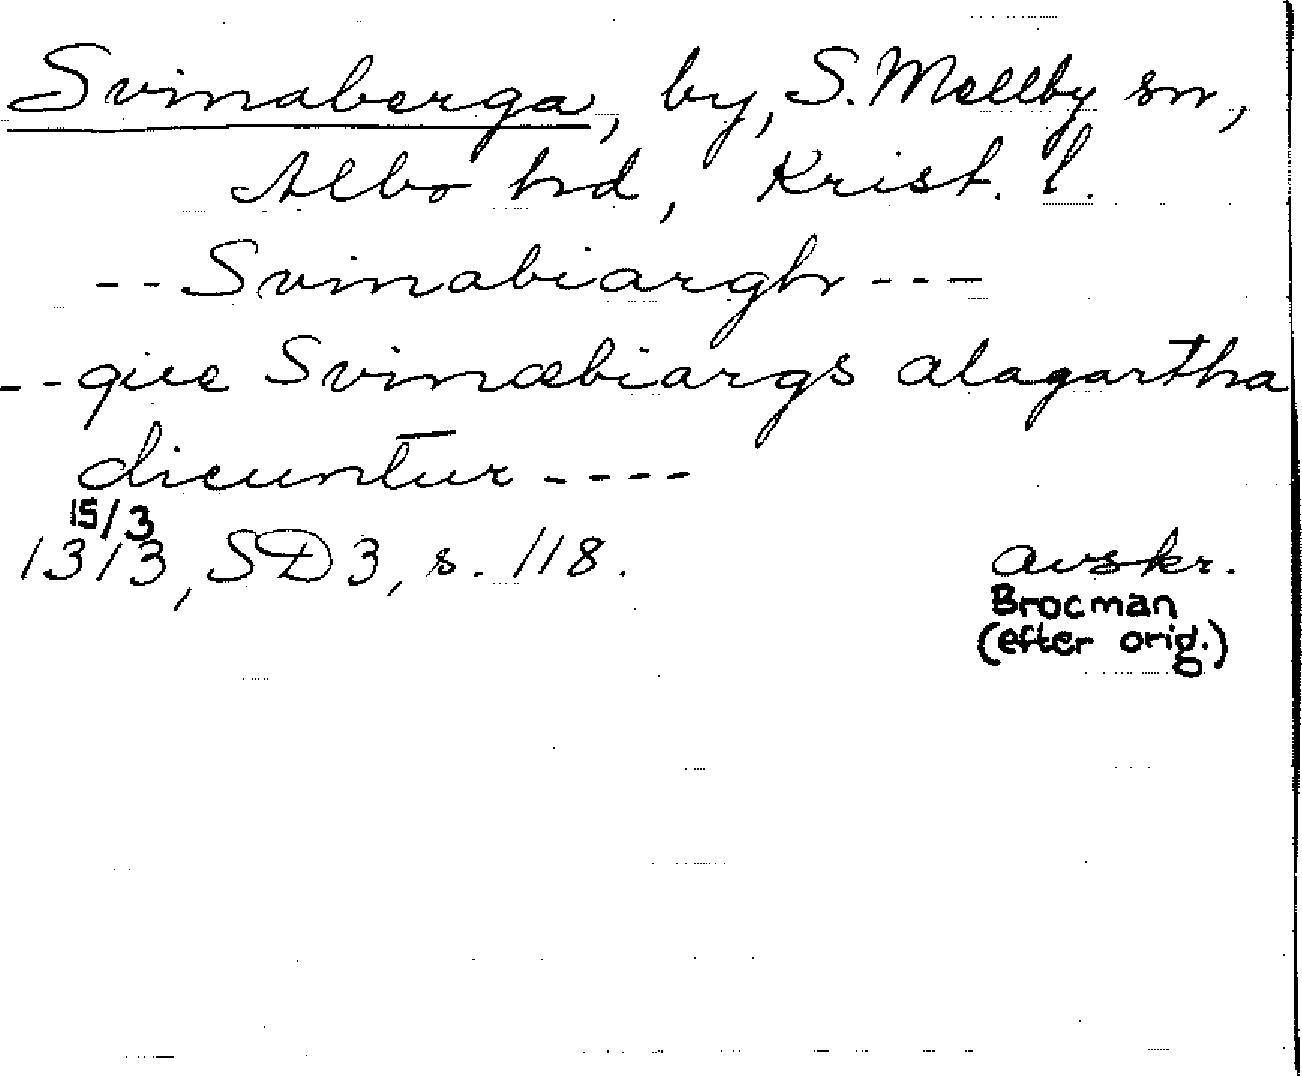 Svinaberga, by, S. Mellby sn,
Albo hd, Krist. l.
-- Svinabiargh ---
-- que Svinæbiargs alagartha
dicuntur ----
15/3
1313, SD 3, s. 118. avskr.
Brocman
(efter orig.)